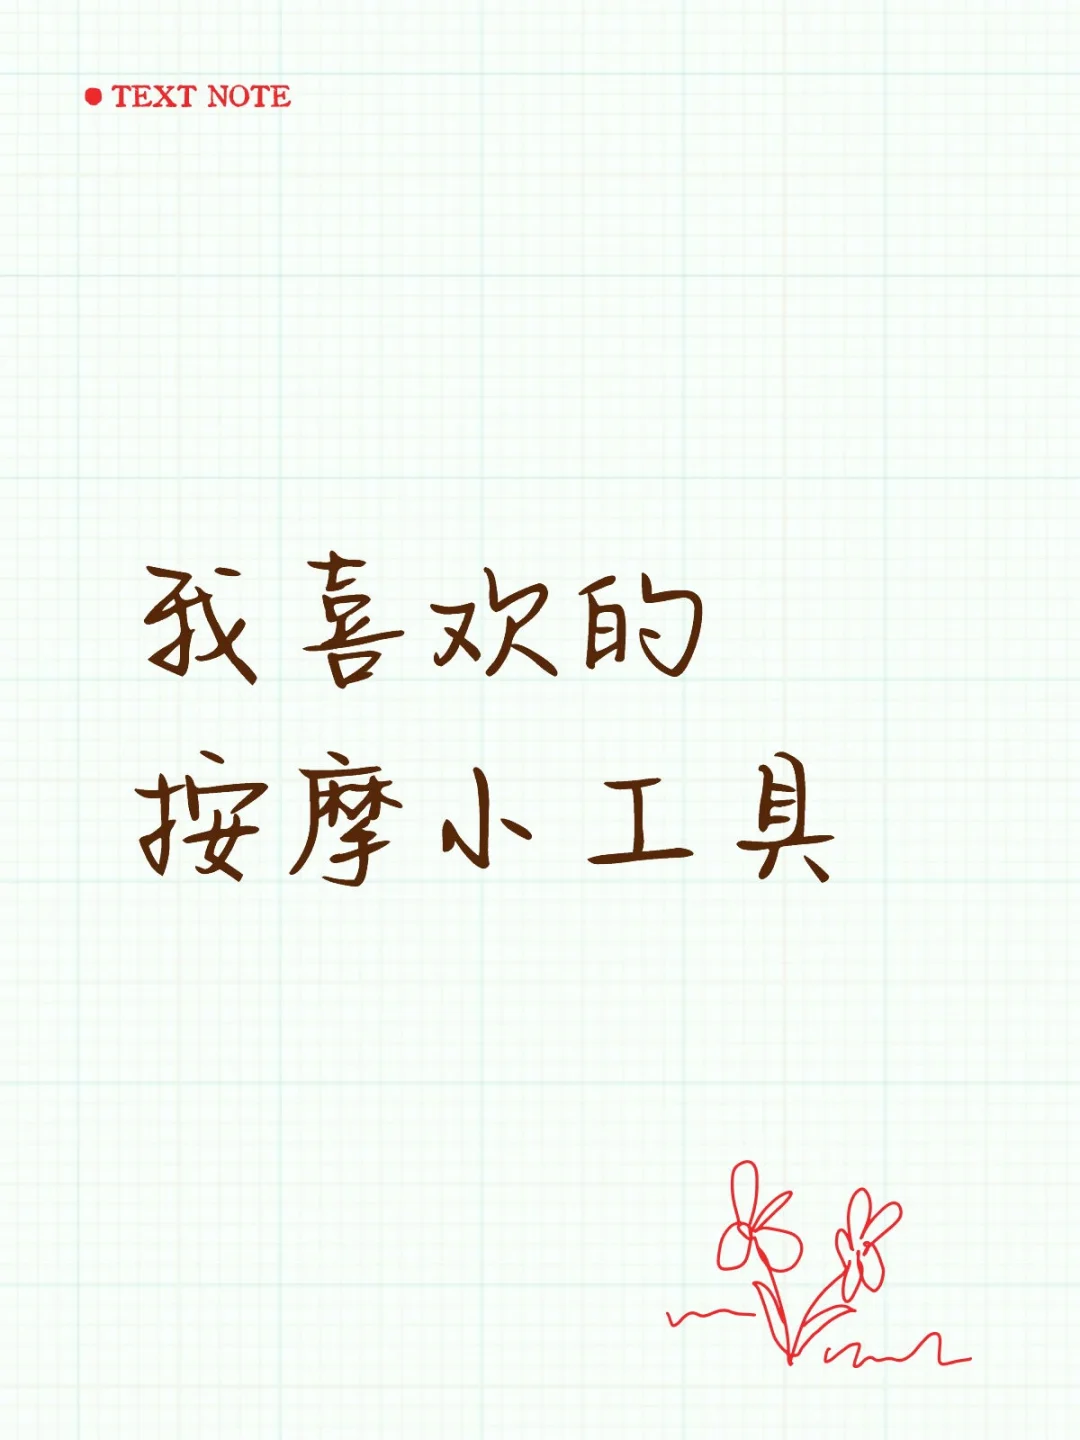 TEXT NOTE
我喜欢的
按摩小工具